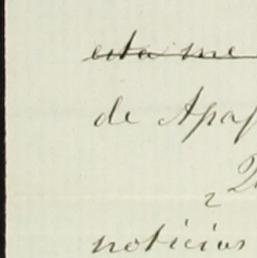 esta me
de Apa
2
noticias